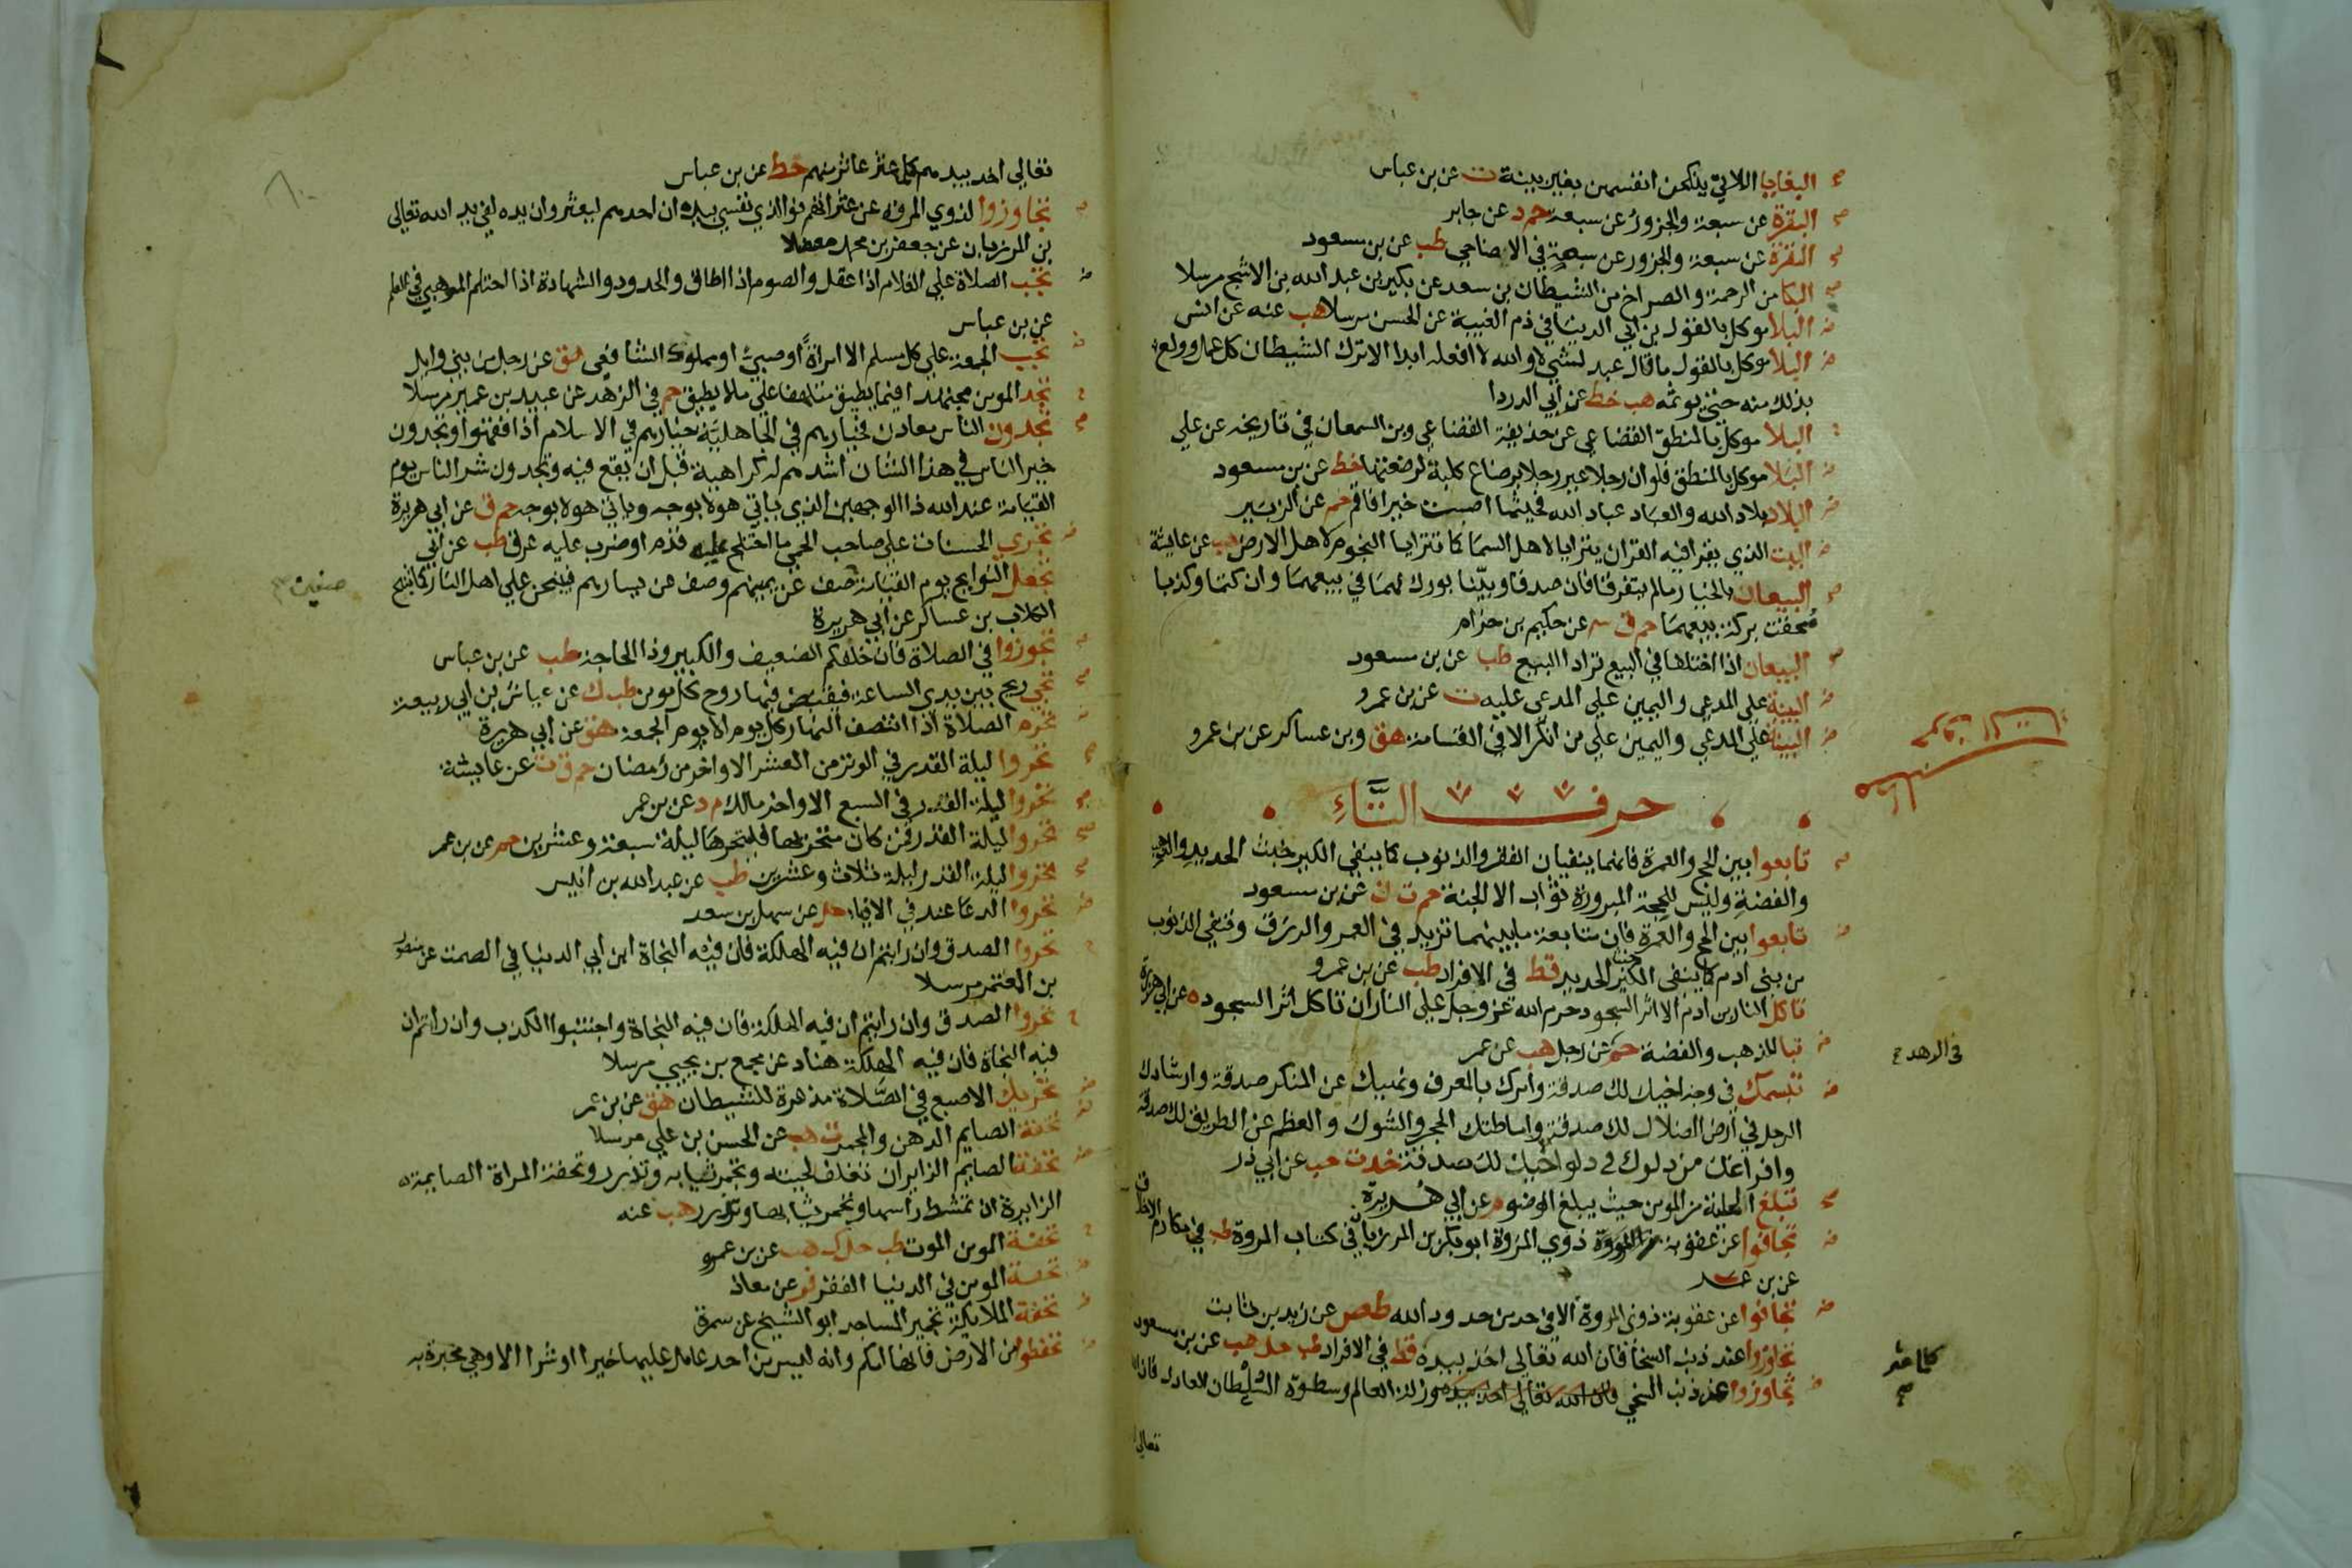 البغايا اللاتي ينكحن انفسهن بغير بينة ت عن بن عباس
البقرة عن سبعة والجزور عن سبعة حم د عن جابر
البقرة عن سبعة والجزور عن سبعة في الاضاحي طب عن بن مسعود
البكا من الرحمة والصراخ من الشيطان بن سعد عن بكير بن عبد الله بن الاشج مرسلا
البلا موكل بالقول بن ابي الدنيا في ذم الغيبة عن الحسن مرسلا هب عنه عن انس
البلا موكل بالقول ما قال عبد لشي لا والله لا افعله ابدا الا ترك الشيطان كل عمل وولع
بذلك منه حتي يوثمه هب خط عن ابي الدردا
البلا موكل بالمنطق القضاعي عن حذيفة القضاعي وبن السمعان في تاريخه عن علي
البلا موكل بالمنطق فلو ان رجلا عير رجلا برضاع كلبة لرضعتها خط عن بن مسعود
البلاد بلاد الله والعباد عباد الله فحيثما اصبت خيرا فاقم حم عن الزبير
البيت الذي يقرا فيه القران يترايا لاهل السما كما تترايا النجوم لاهل الارض هب عن عايشة
البيعان بالخيار مالم يتفرقا فان صدقا وبينا بورك لهما في بيعهما وان كتما وكذبا
محقت بركة بيعهما حم ق عن حكيم بن حزام
البيعان اذا اختلفا في البيع ترادا البيع طب عن بن مسعود
البينة علي المدعي واليمين علي المدعي عليه ت عن بن عمرو
البينة علي المدعي واليمين علي من انكر الا في القسامة هق وبن عساكر عن بن عمرو
حرف التاء
تابعوا بين الحج والعمرة فانهما ينفيان الفقر والذنوب كما ينفي الكير خبث الحديد والذهب
والفضة وليس للحجة المبرورة ثواب الا الجنة حم ت ن عن بن مسعود
تابعوا بين الحج والعمرة فان متابعة ما بينهما تزيد في العمر والرزق وتنفي الذنوب
من بني ادم كما ينفي الكير خبث الحديد قط في الافراد طب عن بن عمرو
تاكل النار بن ادم الا اثر السجود حرم الله عز وجل علي النار ان تاكل اثر السجود ه عن ابي هريرة
تبا للذهب والفضة حم عن رجل هب عن عمر
في الزهد
تبسمك في وجه اخيك لك صدقة وامرك بالمعرف ونهيك عن المنكر صدقة وارشادك
الرجل في ارض الضلال لك صدقة واماطتك الحجر والشوك والعظم عن الطريق لك صدقة
وافراغك من دلوك في دلو اخيك لك صدقة خد ت حب عن ابي ذر
تبلغ الحلية من المومن حيث يبلغ الوضوء م عن ابي هريرة
تجافوا عن عقوبة ذوي المروة ابو بكر بن المرزبان في كتاب المروة طب في مكارم الاخلاق
عن بن عمر
تجافوا عن عقوبة ذوي المروة الا في حد من حدود الله طص عن زيد بن ثابت
تجاوزوا عند ذنب السخا فان الله تعالي اخذ بيده قط في الافراد طب حل هب عن بن مسعود
كلما عثر
تجاوزوا عن ذنب السخي وزلة العالم وسطوة السلطان العادل فان الله
تعالي
تعالي اخذ بيدهم كلما عثر عاثر منهم خط عن بن عباس
تجاوزوا لذوي المروة عن عثراتهم فوالذي نفسي بيده ان احدهم ليعثر وان يده لفي يد الله تعالي
بن المرزبان عن جعفر بن محمد معضلا
تجب الصلاة علي الغلام اذا عقل والصوم اذا اطاق والحدود والشهادة اذا احتلم الموهبي في العلم
عن بن عباس
تجب الجمعة علي كل مسلم الا امراة او صبي او مملوك الشافعي هق عن رجل من بني وايل
تجد المومن مجتهدا فيما يطيق متلهفا علي ما لا يطيق حم في الزهد عن عبيد بن عمير مرسلا
تجدون الناس معادن فخيارهم في الجاهلية خيارهم في الاسلام اذا فقهوا وتجدون
خير الناس في هذا الشان اشدهم له كراهية قبل ان يقع فيه وتجدون شر الناس يوم
القيامة عند الله ذا الوجهين الذي ياتي هولا بوجه وياتي هولا بوجه حم ق عن ابي هريرة
تجري الحسنات علي صاحب الحمي ما اختلج عليه قدم او ضرب عليه عرق طب عن ابي
تجعل النوايح يوم القيامة صف عن يمينهم وصف عن يسارهم فينبحن علي اهل النار كما تنبح
صفين
الكلاب بن عساكر عن ابي هريرة
تجوزوا في الصلاة فان خلفكم الضعيف والكبير وذا الحاجة طب عن بن عباس
تجي ريح بين يدي الساعة فيقبض فيها روح كل مومن طب ك عن عياش بن ابي ربيعة
تحرم الصلاة اذا انتصف النهار كل يوم الا يوم الجمعة هق عن ابي هريرة
تحروا ليلة القدر في الوتر من العشر الاواخر من رمضان حم ق ت عن عايشة
تحروا ليلة القدر في السبع الاواخر مالك م د عن بن عمر
تحروا ليلة القدر فمن كان متحريها فليتحرها ليلة سبعة وعشرين حم عن بن عمر
تحروا ليلة القدر ليلة ثلاث وعشرين طب عن عبد الله بن انيس
تحروا الدعا عند في الافيا حل عن سهل بن سعد
تحروا الصدق وان رايتم ان فيه الهلكة فان فيه النجاة ابن ابي الدنيا في الصمت عن منصور
بن المعتمر مرسلا
تحروا الصدق وان رايتم ان فيه الهلكة فان فيه النجاة واجتنبوا الكذب وان رايتم ان
فيه النجاة فان فيه الهلكة هناد عن مجمع بن يحيي مرسلا
تحريك الاصبع في الصلاة مذعرة للشيطان هق عن بن عمر
تحفة الصايم الدهن والمجمر ت هب عن الحسن بن علي مرسلا
تحفة الصايم الزاير ان تغلف لحيته وتجمر ثيابه وتذرر وتحفة المراة الصايمة
الزايرة ان تمشط راسها وتجمر ثيابها وتذرر هب عنه
تحفة المومن الموت طب حل ك هب عن بن عمرو
تحفة المومن في الدنيا الفقر فر عن معاذ
تحفة الملايكة تجمير المساجد ابو الشيخ عن سمرة
تحفظوا من الارض فانها امكم وانه ليس من احد عامل عليها خيرا او شرا الا وهي مخبرة به